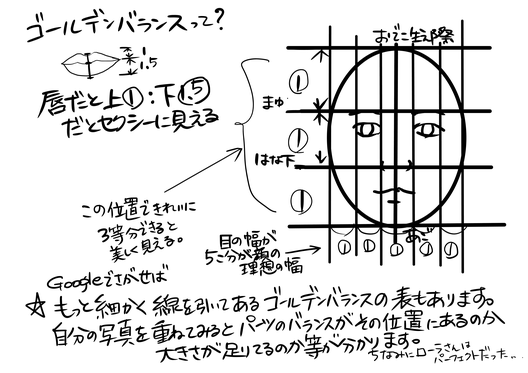 ゴールデンバランスって?
1
1.5
唇だと上①:下1.5
だとセクシーに見える
おでこ生え際
①
まゆ
①
はな下
①
あご
この位置できれいに
3等分できると
美しく見える。
目の幅が
5こ分が顔の
理想の幅
① ① ① ① ①
Googleでさがせば
☆もっと細かく線を引いてあるゴールデンバランスの表もあります。
自分の写真を重ねてみるとパーツのバランスがその位置にあるのか
大きさが足りてるのか等が分かります。
ちなみにローラさんは
パーフェクトだった…